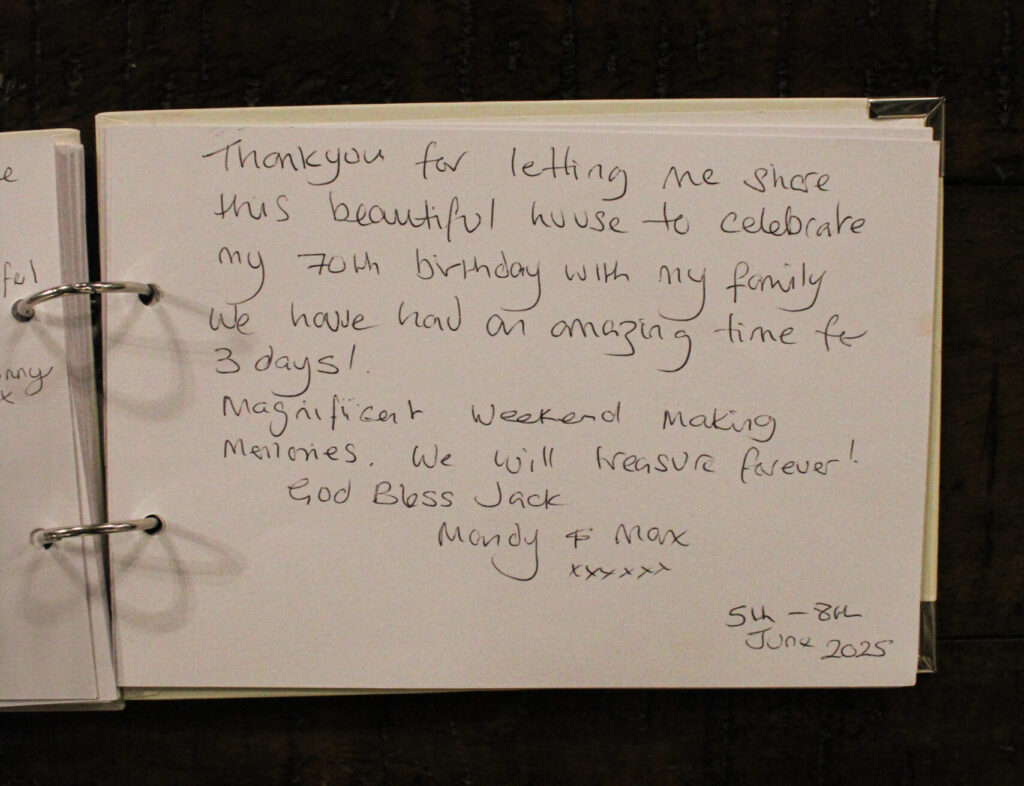 e
ful
nny
x
Thankyou for letting me share
this beautiful house to celebrate
my 70th birthday with my family
We have had an amazing time for
3 days!.
Magnificent Weekend Making
Memories. We will treasure forever!
God Bless Jack
Mandy & Max
xxxxxx
5th – 8th
June 2025